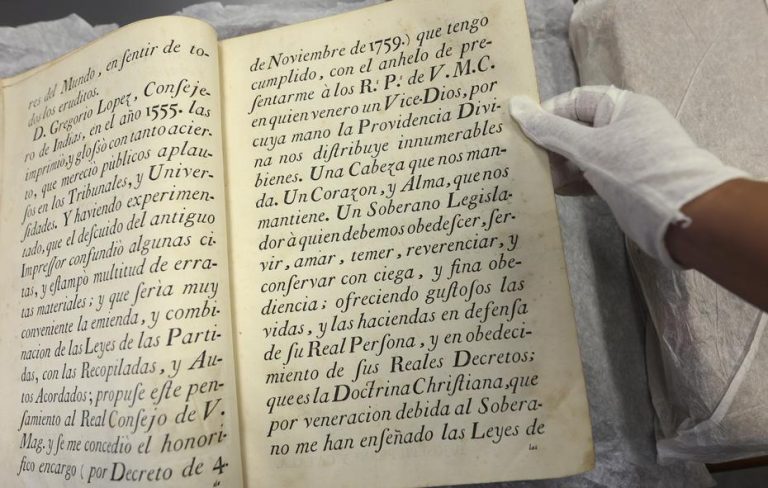 res del Mundo, en ſentir de to-
dos los eruditos.
D. Gregorio Lopez, Conſeje-
ro de Indias, en el año 1555. las
imprimiò, y gloſsò con tanto acier-
to, que mereciò pùblicos aplau-
ſos en los Tribunales, y Univer-
ſidades. Y haviendo experimen-
tado, que el deſcuido del antiguo
Impreſſor confundiò algunas ci-
tas, y eſtampò multitud de erra-
tas materiales; y que ſerìa muy
conveniente la emienda, y combi-
nacion de las Leyes de las Parti-
das, con las Recopiladas, y Au-
tos Acordados; propuſe eſte pen-
ſamiento al Real Conſejo de V.
Mag. y ſe me concediò el honori-
fico encargo (por Decreto de 4.
de
de Noviembre de 1759.) que tengo
cumplido, con el anhelo de pre-
ſentarme à los R.ˢ P.ˢ de V. M. C.
en quien venero un Vice-Dios, por
cuya mano la Providencia Divi-
na nos diſtribuye innumerables
bienes. Una Cabeza que nos man-
da. Un Corazon, y Alma, que nos
mantiene. Un Soberano Legisla-
dor à quien debemos obedeſcer, ſer-
vir, amar, temer, reverenciar, y
conſervar con ciega, y fina obe-
diencia; ofreciendo guſtoſos las
vidas, y las haciendas en defenſa
de ſu Real Perſona, y en obedeci-
miento de sus Reales Decretos;
que es la Doctrina Chriſtiana, que
por veneracion debida al Sobera-
no me han enſeñado las Leyes de
las